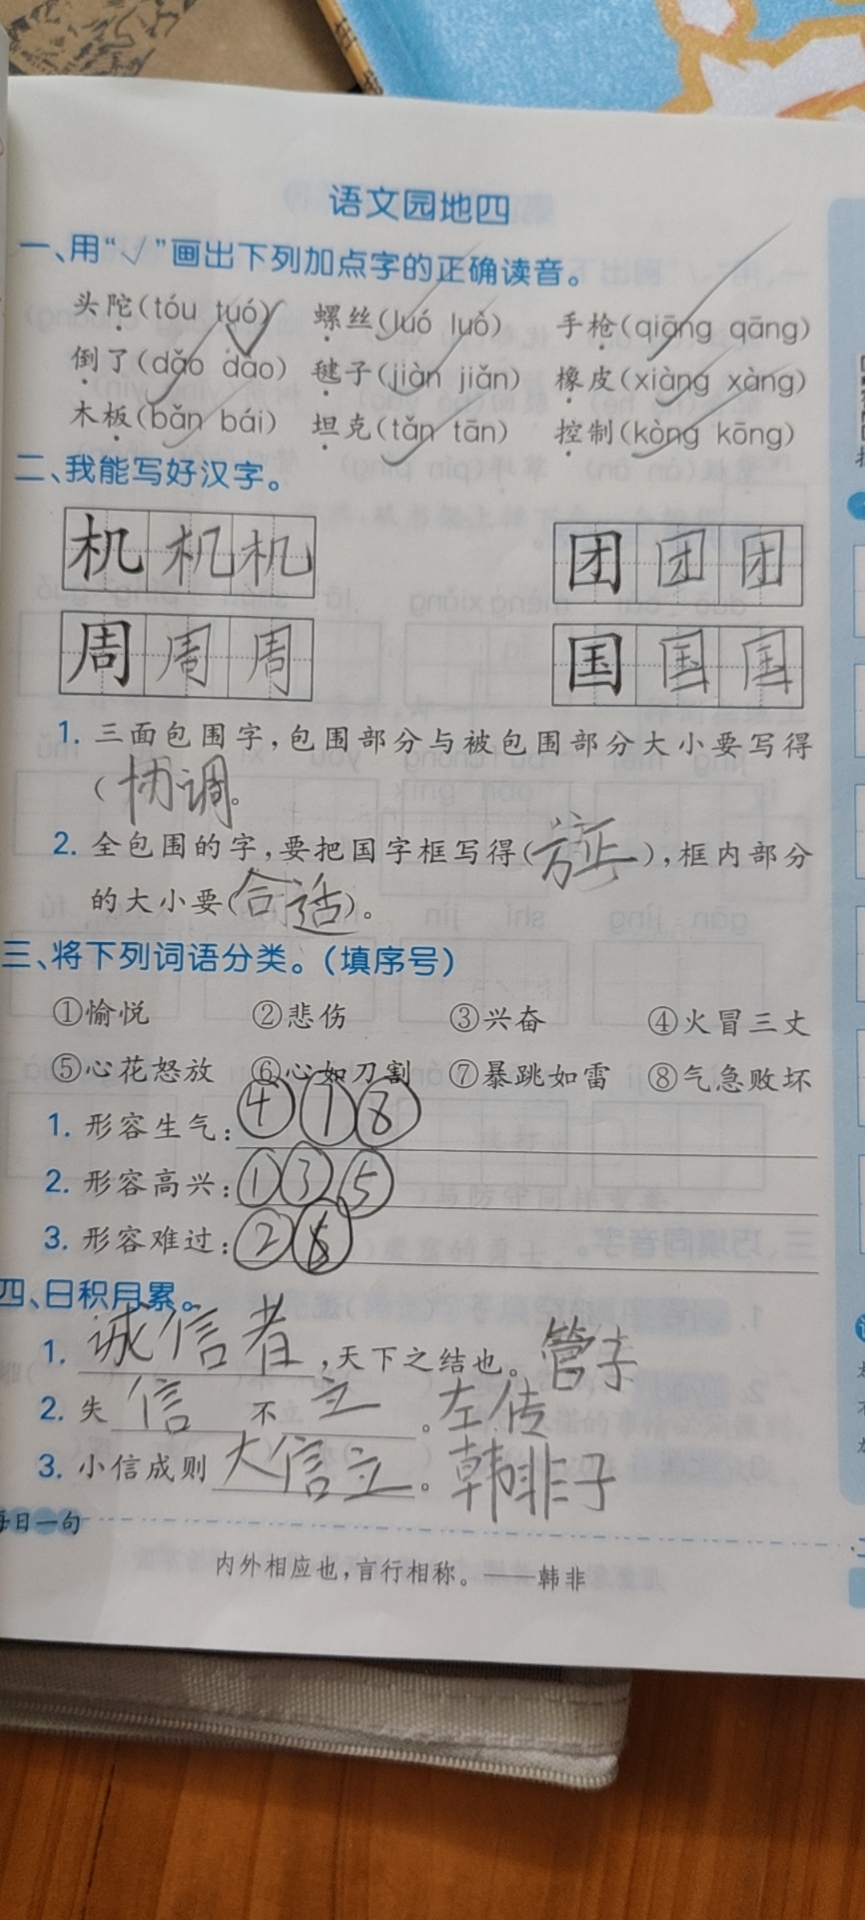 语文园地四
一、用“√”画出下列加点字的正确读音。
头陀(tóu tuó) 螺丝(luó luò) 手枪(qiāng qāng)
倒了(dǎo dào) 毽子(jiàn jiǎn) 橡皮(xiàng xàng)
木板(bǎn bái) 坦克(tǎn tān) 控制(kòng kōng)
二、我能写好汉字。
机机机 团团团
周周周 国国国
1. 三面包围字,包围部分与被包围部分大小要写得
(协调。
2. 全包围的字,要把国字框写得(方正),框内部分
的大小要(合适)。
三、将下列词语分类。(填序号)
①愉悦 ②悲伤 ③兴奋 ④火冒三丈
⑤心花怒放 ⑥心如刀割 ⑦暴跳如雷 ⑧气急败坏
1. 形容生气:④⑦⑧
2. 形容高兴:①③⑤
3. 形容难过:②⑥
四、日积月累。
1. 诚信者,天下之结也。管子
2. 失信不立。左传
3. 小信成则大信立。韩非子
每日一句
内外相应也,言行相称。——韩非